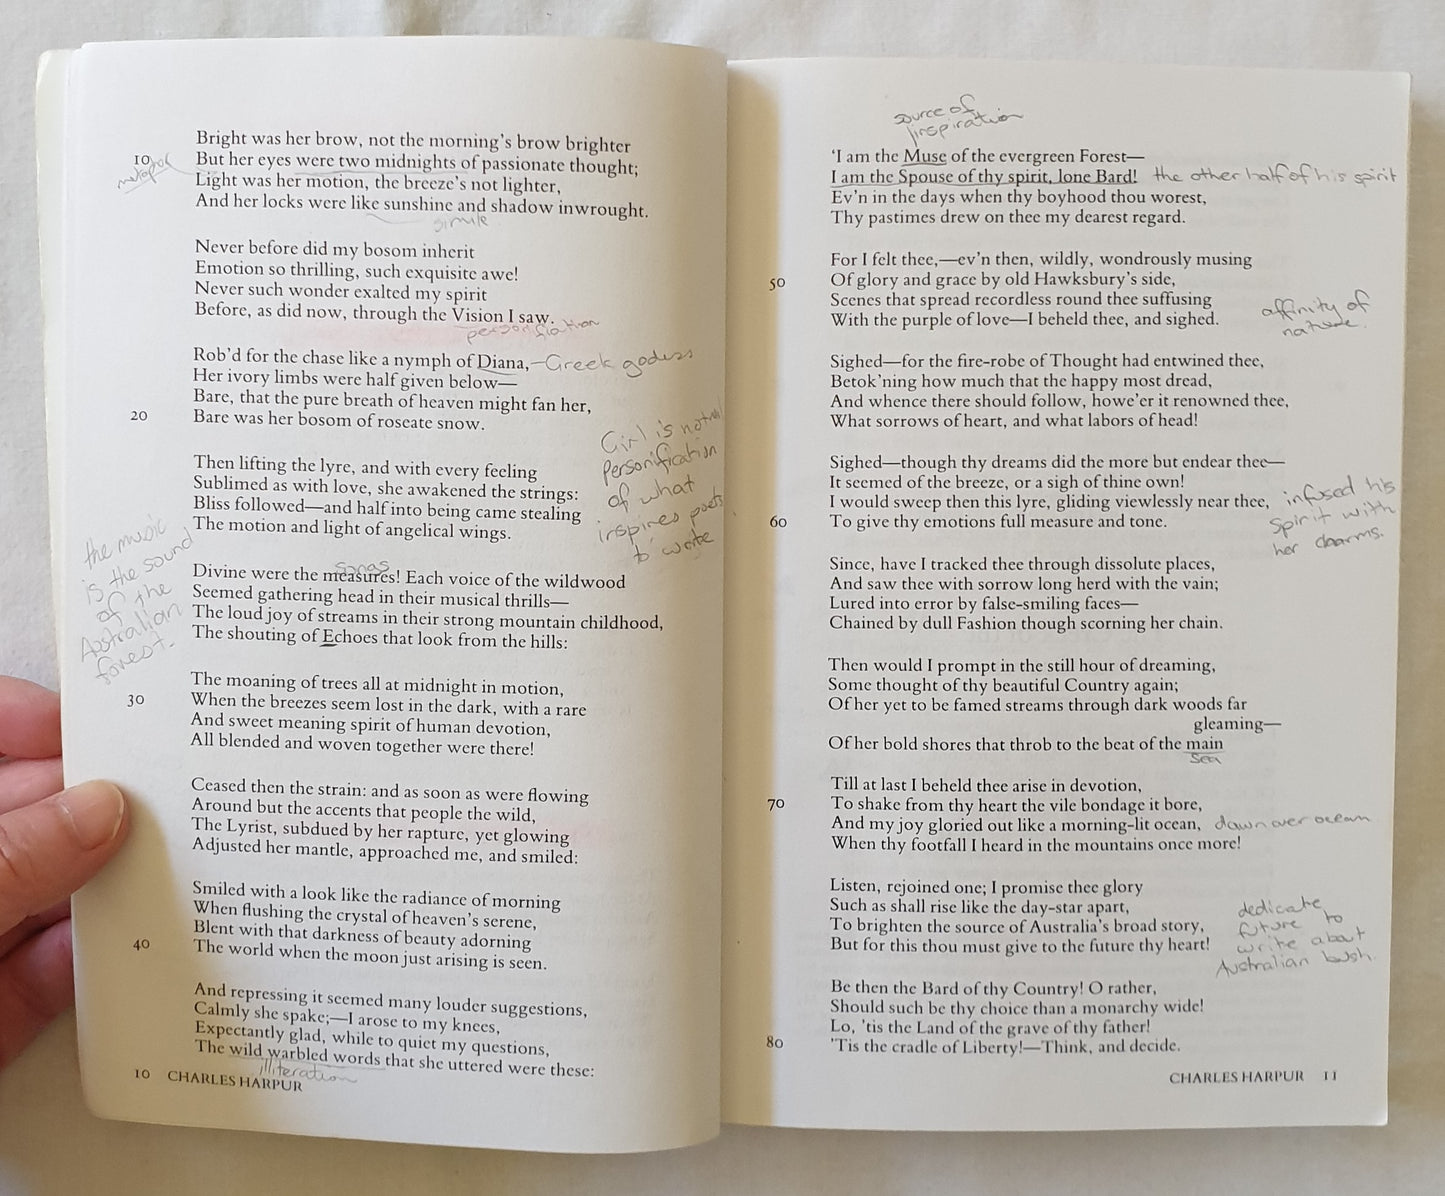 Bright was her brow, not the morning's brow brighter
10
metaphor
But her eyes were two midnights of passionate thought;
Light was her motion, the breeze's not lighter,
And her locks were like sunshine and shadow inwrought.
simile
Never before did my bosom inherit
Emotion so thrilling, such exquisite awe!
Never such wonder exalted my spirit
Before, as did now, through the Vision I saw.
personification
Rob'd for the chase like a nymph of Diana, —Greek godess
Her ivory limbs were half given below—
Bare, that the pure breath of heaven might fan her,
20 Bare was her bosom of roseate snow.
Girl is
personification
of what
inspires poets
to write
Then lifting the lyre, and with every feeling
Sublimed as with love, she awakened the strings:
Bliss followed—and half into being came stealing
The motion and light of angelical wings.
the music
is the sound
of the
Australian
forest.
songs
Divine were the measures! Each voice of the wildwood
Seemed gathering head in their musical thrills—
The loud joy of streams in their strong mountain childhood,
The shouting of Echoes that look from the hills:
The moaning of trees all at midnight in motion,
30 When the breezes seem lost in the dark, with a rare
And sweet meaning spirit of human devotion,
All blended and woven together were there!
Ceased then the strain: and as soon as were flowing
Around but the accents that people the wild,
The Lyrist, subdued by her rapture, yet glowing
Adjusted her mantle, approached me, and smiled:
Smiled with a look like the radiance of morning
When flushing the crystal of heaven's serene,
Blent with that darkness of beauty adorning
40 The world when the moon just arising is seen.
And repressing it seemed many louder suggestions,
Calmly she spake;—I arose to my knees,
Expectantly glad, while to quiet my questions,
The wild warbled words that she uttered were these:
illiteration
10 CHARLES HARPUR
source of
inspiration
'I am the Muse of the evergreen Forest—
I am the Spouse of thy spirit, lone Bard! the other half of his spirit
Ev'n in the days when thy boyhood thou worest,
Thy pastimes drew on thee my dearest regard.
For I felt thee,—ev'n then, wildly, wondrously musing
50 Of glory and grace by old Hawksbury's side,
Scenes that spread recordless round thee suffusing
With the purple of love—I beheld thee, and sighed.
affinity of
nature.
Sighed—for the fire-robe of Thought had entwined thee,
Betok'ning how much that the happy most dread,
And whence there should follow, howe'er it renowned thee,
What sorrows of heart, and what labors of head!
Sighed—though thy dreams did the more but endear thee—
It seemed of the breeze, or a sigh of thine own!
I would sweep then this lyre, gliding viewlessly near thee,
60 To give thy emotions full measure and tone.
infused his
spirit with
her charms.
Since, have I tracked thee through dissolute places,
And saw thee with sorrow long herd with the vain;
Lured into error by false-smiling faces—
Chained by dull Fashion though scorning her chain.
Then would I prompt in the still hour of dreaming,
Some thought of thy beautiful Country again;
Of her yet to be famed streams through dark woods far
gleaming—
Of her bold shores that throb to the beat of the main
sea
Till at last I beheld thee arise in devotion,
70 To shake from thy heart the vile bondage it bore,
And my joy gloried out like a morning-lit ocean, dawn over ocean
When thy footfall I heard in the mountains once more!
Listen, rejoined one; I promise thee glory
Such as shall rise like the day-star apart,
To brighten the source of Australia's broad story,
But for this thou must give to the future thy heart!
dedicate
future to
write about
Australian bush.
Be then the Bard of thy Country! O rather,
Should such be thy choice than a monarchy wide!
Lo, 'tis the Land of the grave of thy father!
80 'Tis the cradle of Liberty!—Think, and decide.
CHARLES HARPUR 11